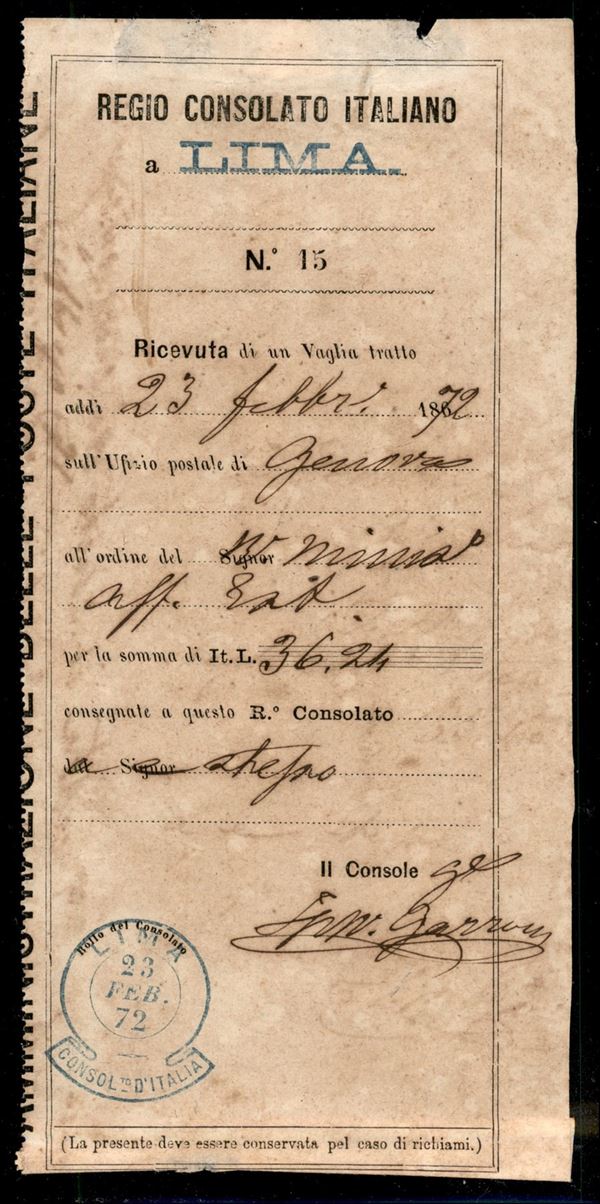 REGIO CONSOLATO ITALIANO
a LIMA.
N.° 15
Ricevuta di un Vaglia tratto
addì 23 febbr. 1872
sull'Ufizio postale di Genova
all'ordine del Signor Minis°
aff. Est
per la somma di It.L. 36,24
consegnate a questo R.° Consolato
dal Signor stesso
Il Console gle
Garrou
Bollo del Consolato
LIMA
23
FEB.
72
CONSOL.TO D'ITALIA
(La presente deve essere conservata pel caso di richiami.)
AMMINISTRAZIONE DELLE POSTE ITALIANE